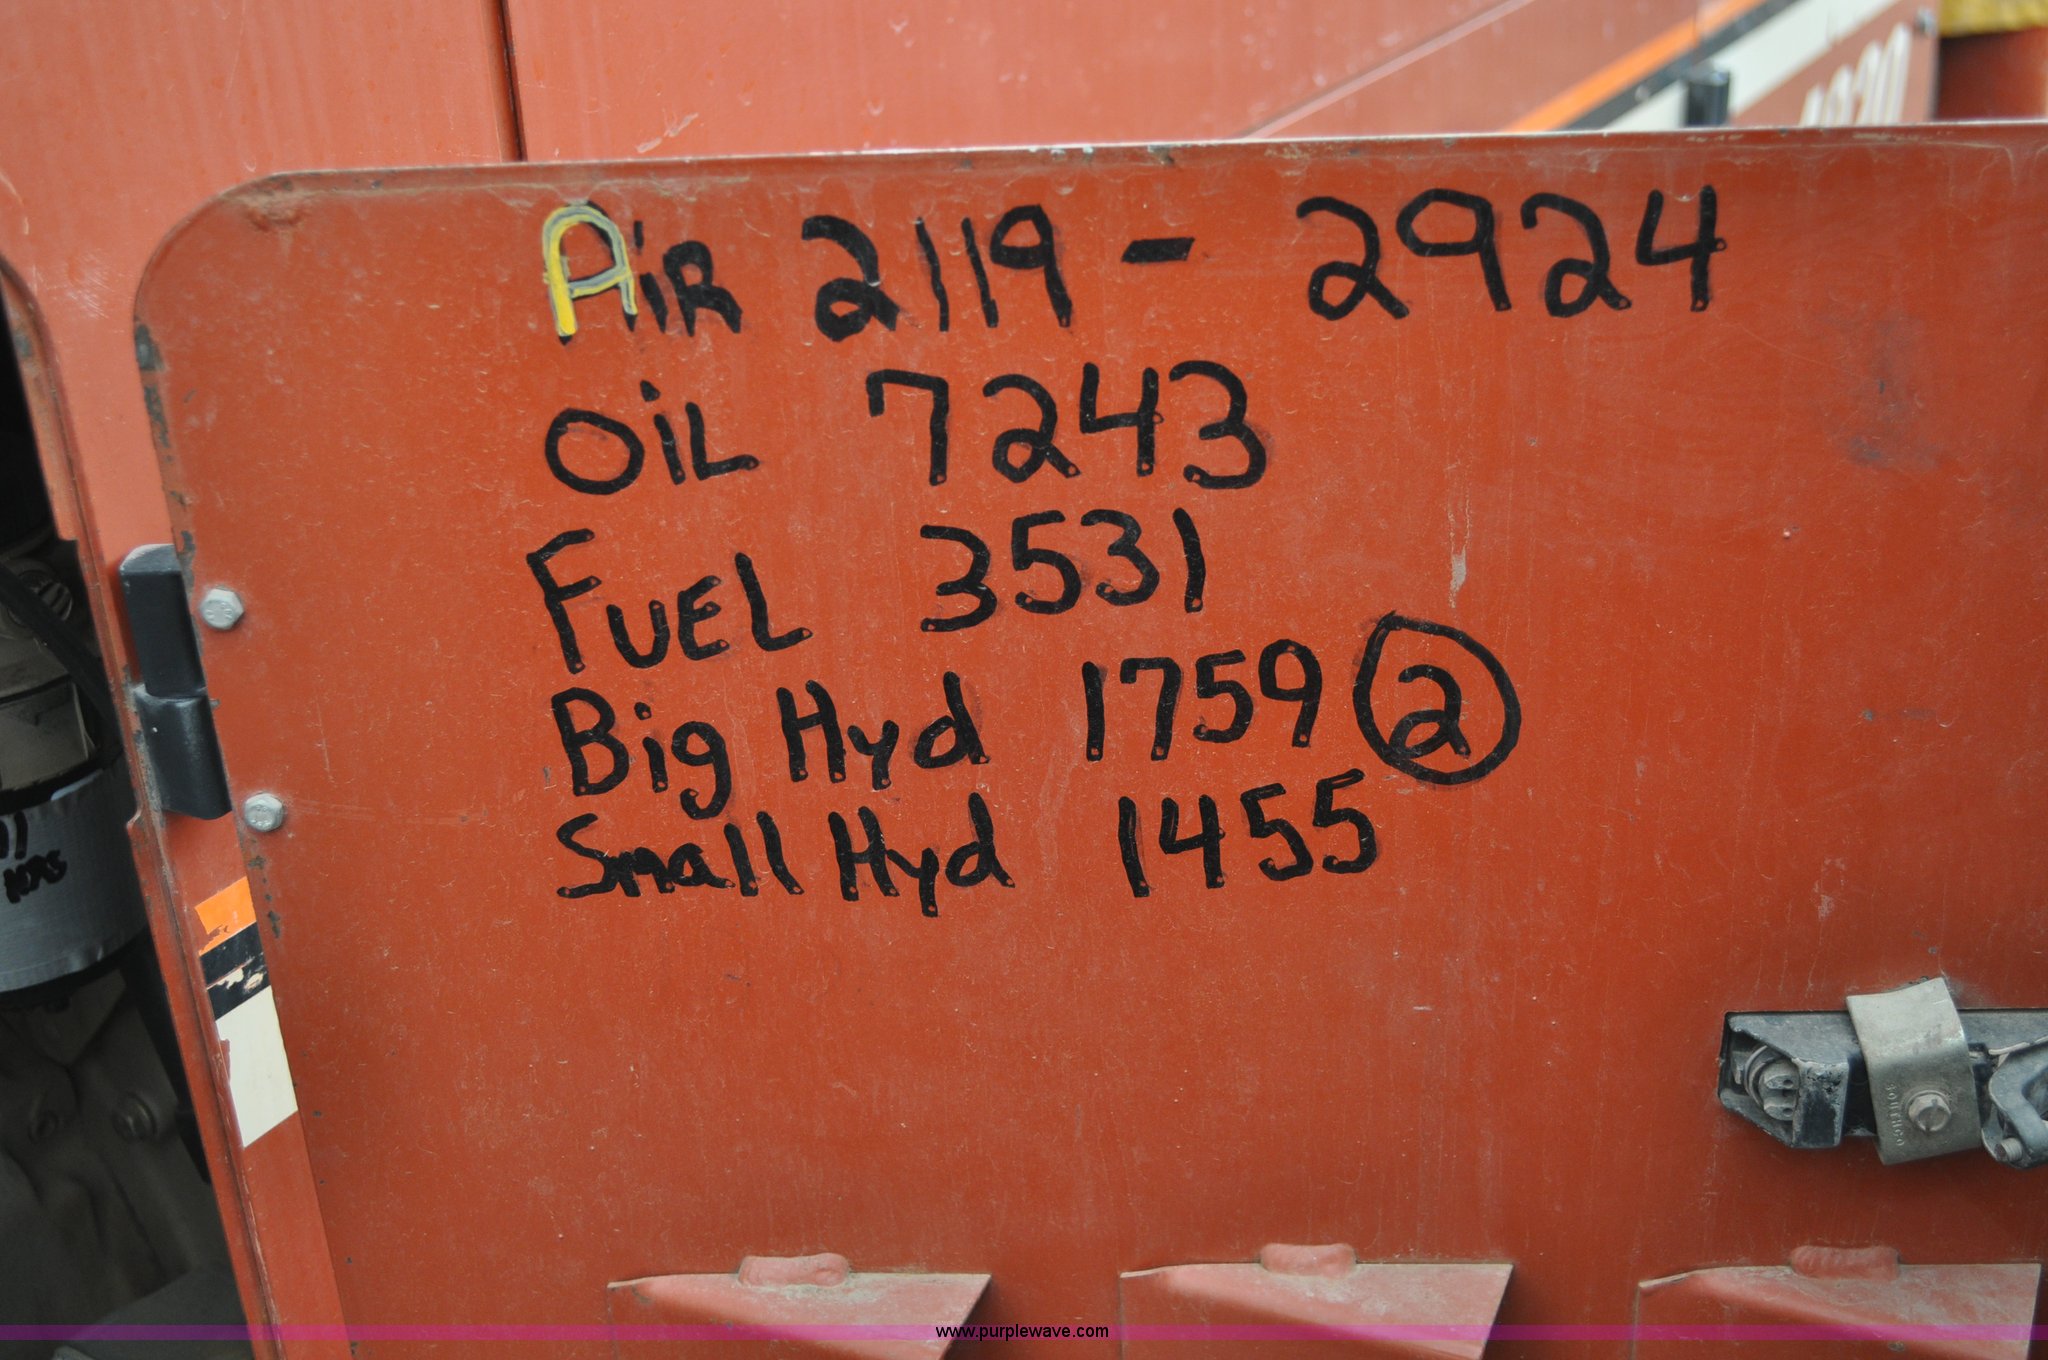 1020
AiR 2119 - 2924
OiL 7243
FUEL 3531
Big Hyd 1759 2
Small Hyd 1455
HRS
www.purplewave.com